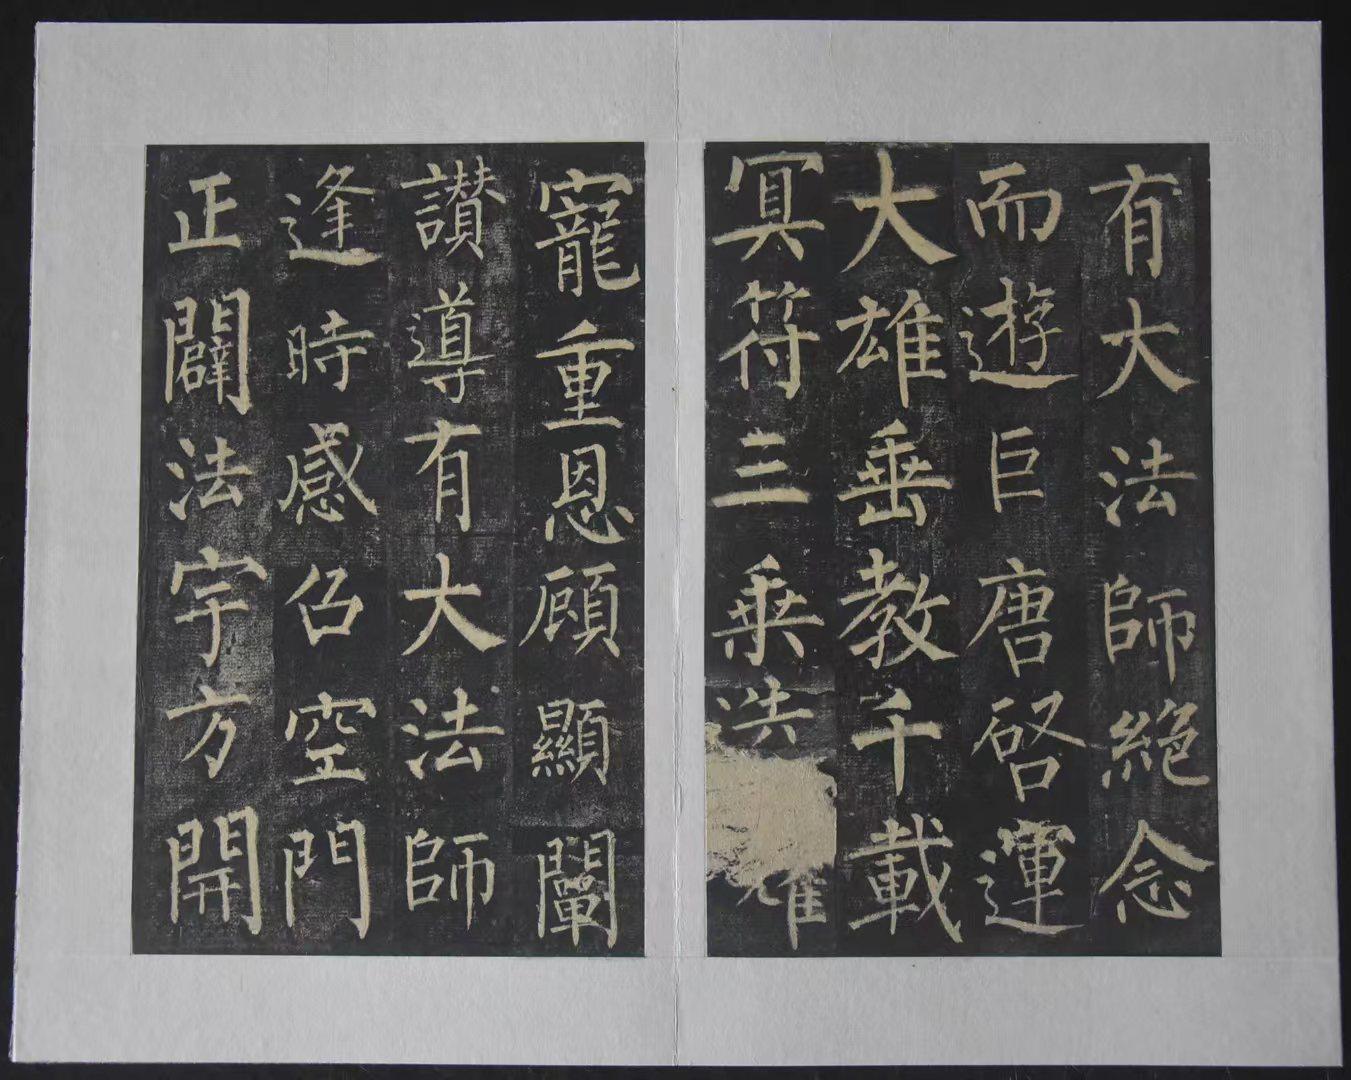 有大法師絶念
而遊巨唐啓運
大雄垂教千載
冥符三乗迭耀
寵重恩顧顯闡
讃導有大法師
逢時感召空門
正闢法宇方開